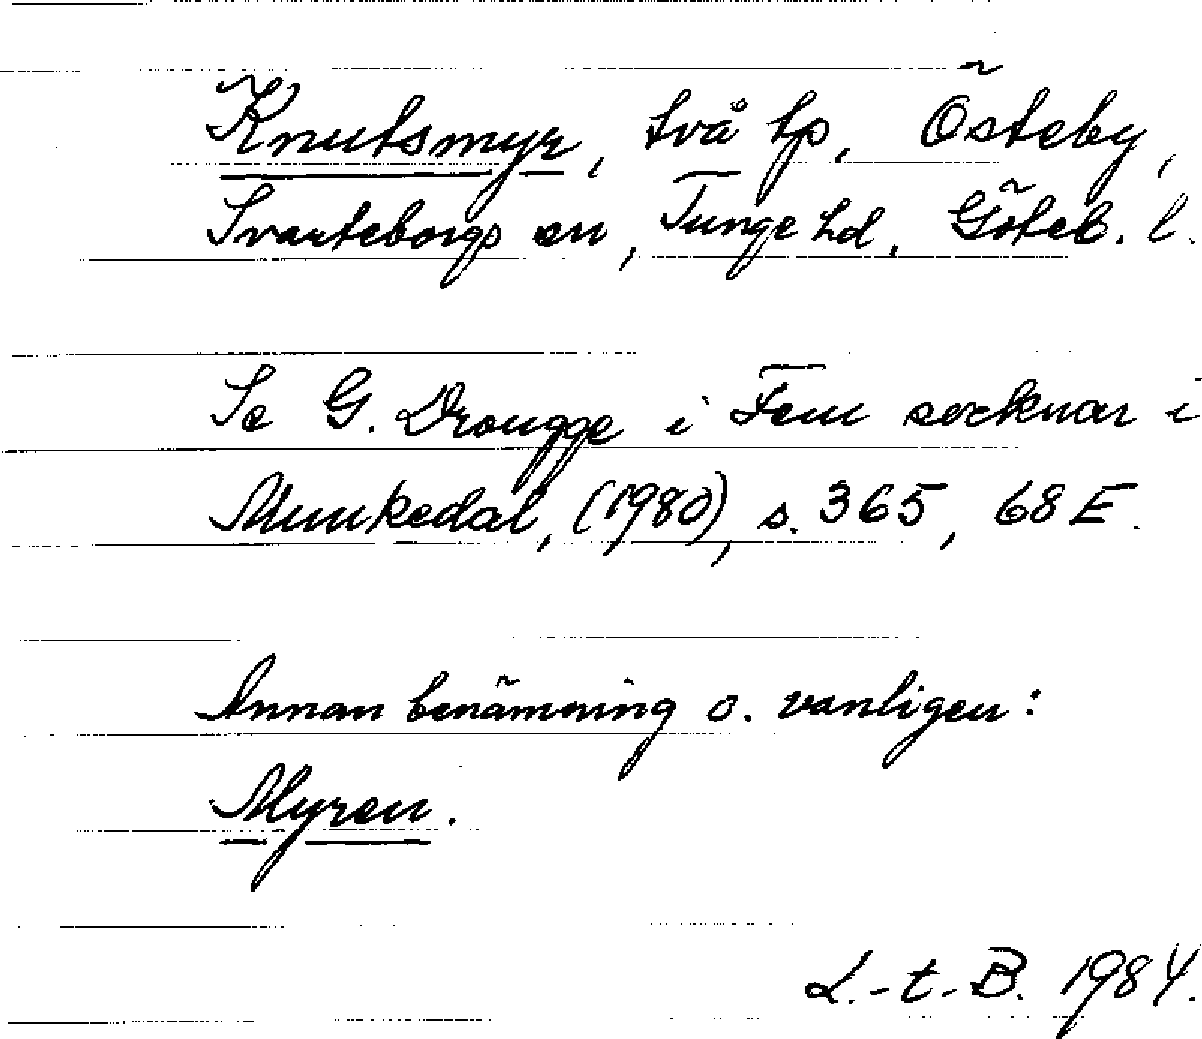 Knutsmyr, två tp, Östeby,
Svarteborgs sn, Tunge hd, Göteb. l.
Se G. Drougge i Fem socknar i
Munkedal, (1980), s. 365, 68 E.
Annan benämning o. vanligen:
Myren.
L.-t.-B. 1984.